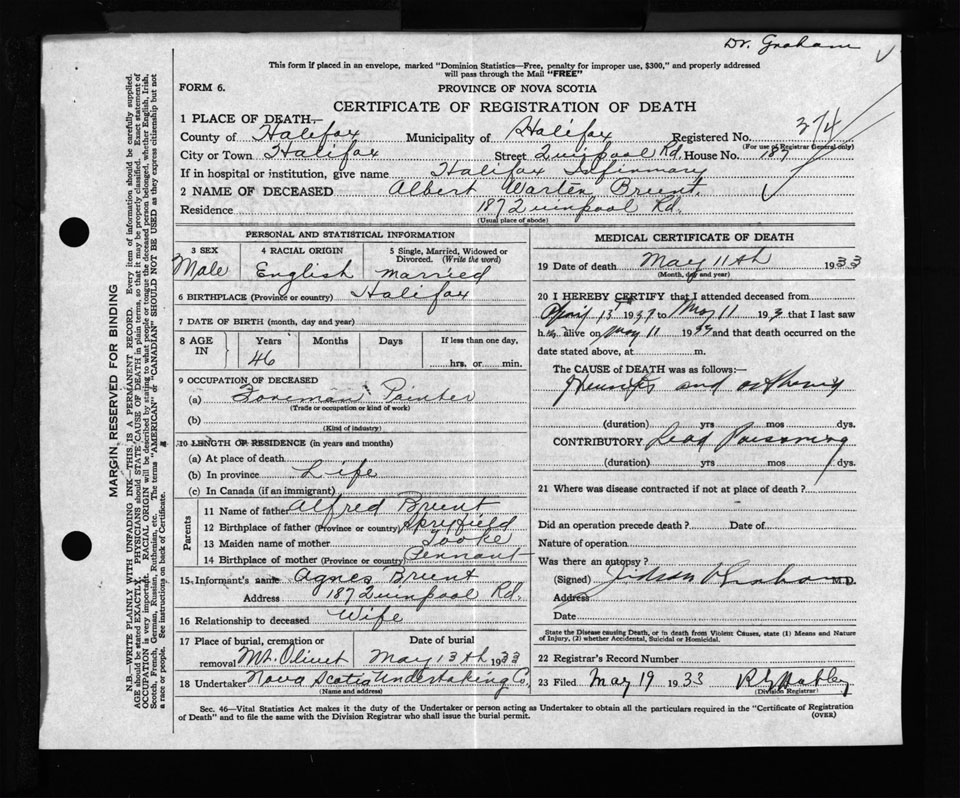 Dr. Graham
This form if placed in an envelope, marked "Dominion Statistics—Free, penalty for improper use, $300," and properly addressed
will pass through the Mail "FREE"
FORM 6.
PROVINCE OF NOVA SCOTIA
CERTIFICATE OF REGISTRATION OF DEATH
1 PLACE OF DEATH—
County of Halifax Municipality of Halifax Registered No. 374
(For use of Registrar General only)
City or Town Halifax Street Quinpool Rd. House No. 187
If in hospital or institution, give name Halifax Infirmary
2 NAME OF DECEASED Albert Warten Brunt
Residence 187 Quinpool Rd.
(Usual place of abode)
PERSONAL AND STATISTICAL INFORMATION
3 SEX 4 RACIAL ORIGIN 5 Single, Married, Widowed or
Divorced. (Write the word)
Male English Married
6 BIRTHPLACE (Province or country) Halifax
7 DATE OF BIRTH (month, day and year)
8 AGE IN Years Months Days If less than one day,
46 hrs. or min.
9 OCCUPATION OF DECEASED
(a) Foreman Painter
(Trade or occupation or kind of work)
(b)
(Kind of industry)
10 LENGTH OF RESIDENCE (in years and months)
(a) At place of death
(b) In province Life
(c) In Canada (if an immigrant)
Parents
11 Name of father Alfred Brunt
12 Birthplace of father (Province or country) Spryfield
13 Maiden name of mother Tooke
14 Birthplace of mother (Province or country) Pennant
15 Informant's name Agnes Brunt
Address 187 Quinpool Rd.
16 Relationship to deceased Wife
17 Place of burial, cremation or Date of burial
removal Mt. Olivet May 13th 1933
18 Undertaker Nova Scotia Undertaking Co.
(Name and address)
MEDICAL CERTIFICATE OF DEATH
19 Date of death May 11th 1933
(Month, day and year)
20 I HEREBY CERTIFY that I attended deceased from
April 13 to May 11 193 that I last saw
h alive on May 11 1933 and that death occurred on
date stated above, at m.
The CAUSE of DEATH was as follows:—
and
(duration) yrs mos dys.
CONTRIBUTORY Lead Poisoning
(duration) yrs mos dys.
21 Where was disease contracted if not at place of death?
Did an operation precede death? Date of
Nature of operation
Was there an autopsy?
(Signed) Judson Graham M.D.
Address
Date
State the Disease causing Death, or in death from Violent Causes, state (1) Means and Nature
of Injury, (2) whether Accidental, Suicidal or Homicidal.
22 Registrar's Record Number
23 Filed May 19 1933
(Division Registrar)
Sec. 46—Vital Statistics Act makes it the duty of the Undertaker or person acting as Undertaker to obtain all the particulars required in the "Certificate of Registration
of Death" and to file the same with the Division Registrar who shall issue the burial permit. (OVER)
MARGIN RESERVED FOR BINDING
N.B.—WRITE PLAINLY WITH UNFADING INK—THIS IS A PERMANENT RECORD. Every item of information should be carefully supplied.
AGE should be stated EXACTLY. PHYSICIANS should STATE CAUSE OF DEATH in plain terms, so that it may be properly classified. Exact statement of
OCCUPATION is very important. RACIAL ORIGIN will be described by stating to what people or tongue the deceased person belonged, whether English, Irish,
Scotch, French, German, Russian, Ruthenian, etc. The terms "AMERICAN" or "CANADIAN" SHOULD NOT BE USED as they express citizenship but not
a race or people. See instructions on back of Certificate.